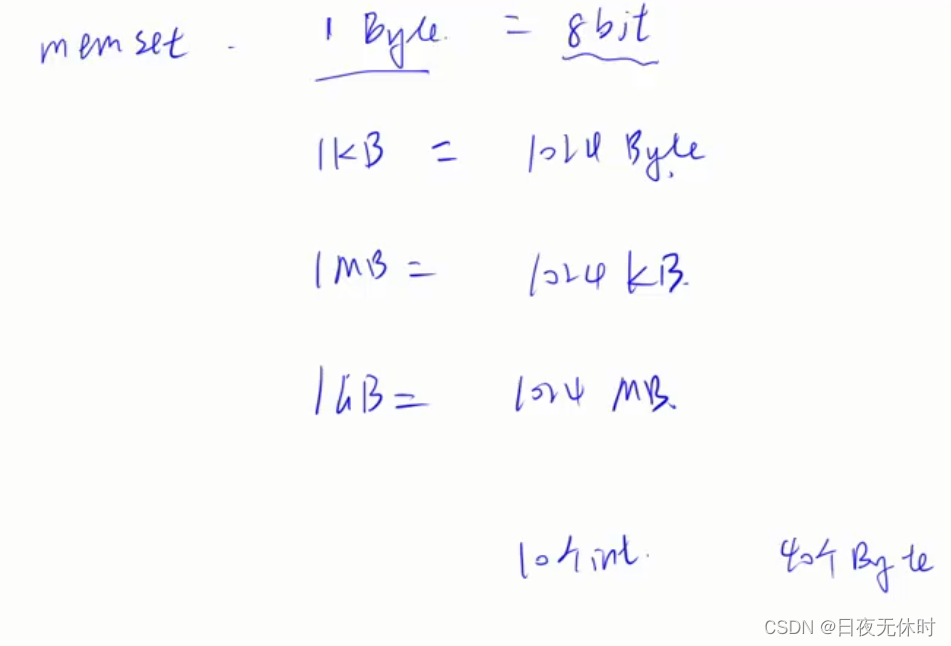 memset. 1 Byte. = 8bit
1KB = 1024 Byte.
1MB = 1024 KB.
1GB = 1024 MB.
10个int. 40个Byte
CSDN @日夜无休时